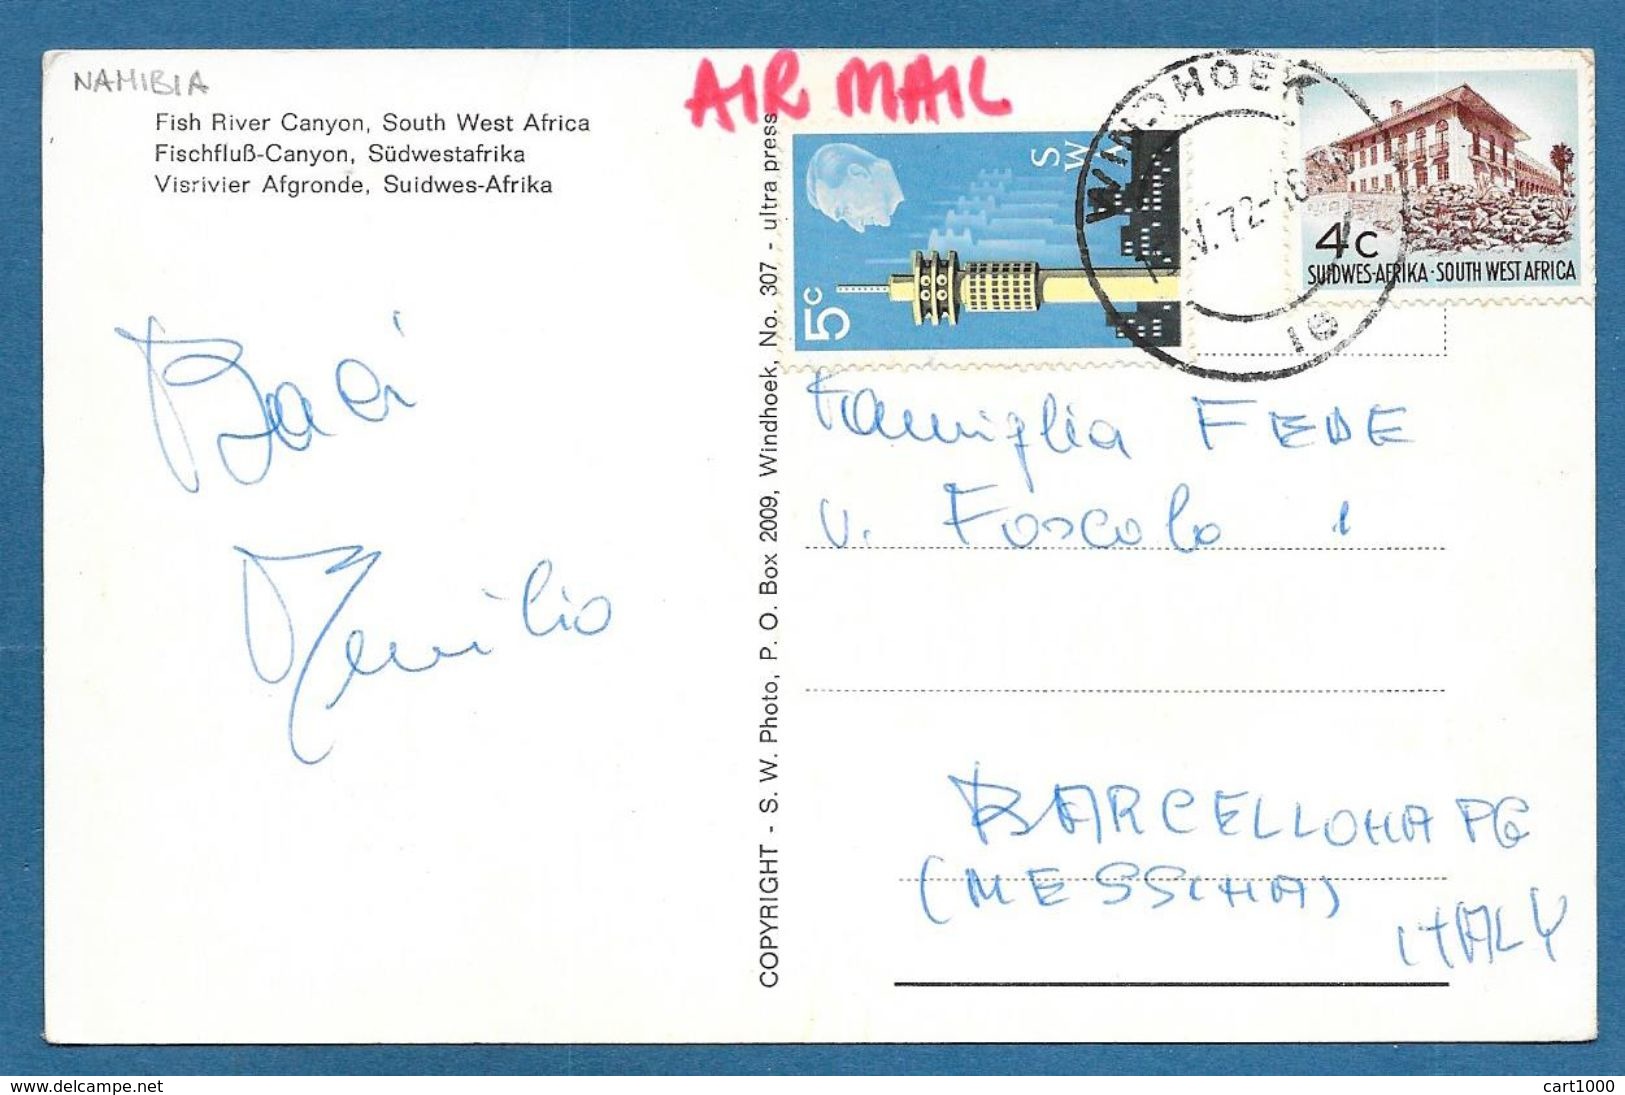 NAMIBIA
Fish River Canyon, South West Africa
Fischfluß-Canyon, Südwestafrika
Visrivier Afgronde, Suidwes-Afrika
AIR MAIL
Baci
COPYRIGHT - S. W. Photo, P. O. Box 2009, Windhoek, No. 307 - ultra press
5c
SWA
WINDHOEK
V.72
4c
SUIDWES-AFRIKA · SOUTH WEST AFRICA
Famiglia FEDE
v. Foscolo 1
BARCELLONA PG
(MESSINA)
ITALY
delcampe.net
cart1000